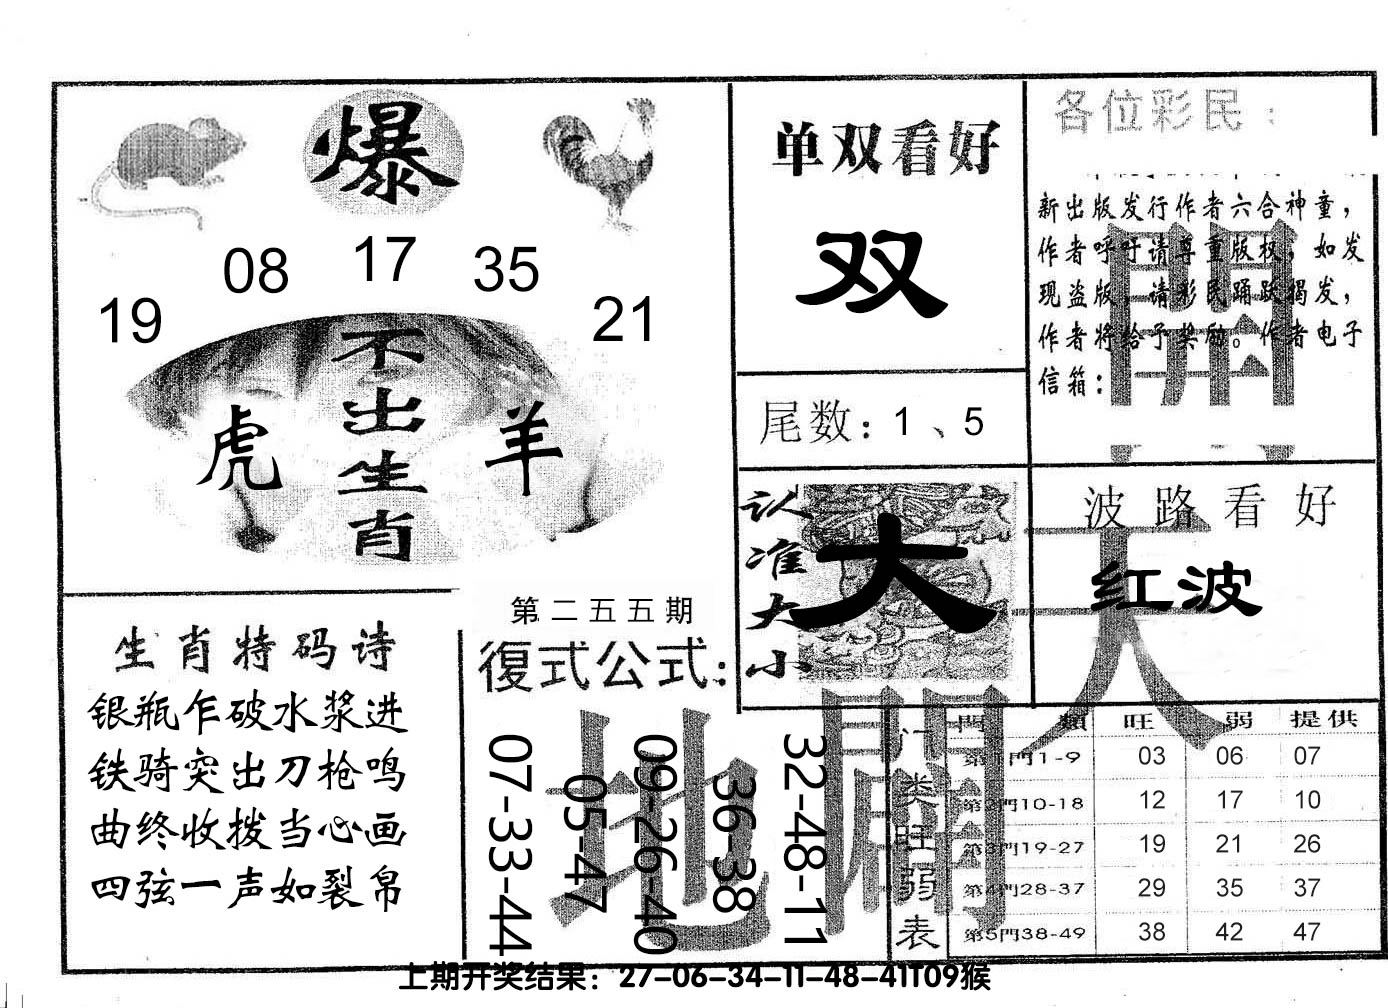 爆
08 17 35
19 21
不出生肖
虎 羊
单双看好
双
尾数：1、5
各位彩民：
新出版发行作者六合神童，
作者呼吁请尊重版权，如发
现盗版，请彩民踊跃揭发，
作者将给予奖励。作者电子
信箱：
開
认准大小
大
波路看好
红波
天
生肖特码诗
银瓶乍破水浆进
铁骑突出刀枪鸣
曲终收拨当心画
四弦一声如裂帛
第二五五期
復式公式：
07-33-44
05-47
09-26-40
36-38
32-48-11
地
闢
门类旺弱表
門 類 旺 弱 提供
第1門1-9 03 06 07
第2門10-18 12 17 10
第3門19-27 19 21 26
第4門28-37 29 35 37
第5門38-49 38 42 47
上期开奖结果：27-06-34-11-48-41T09猴